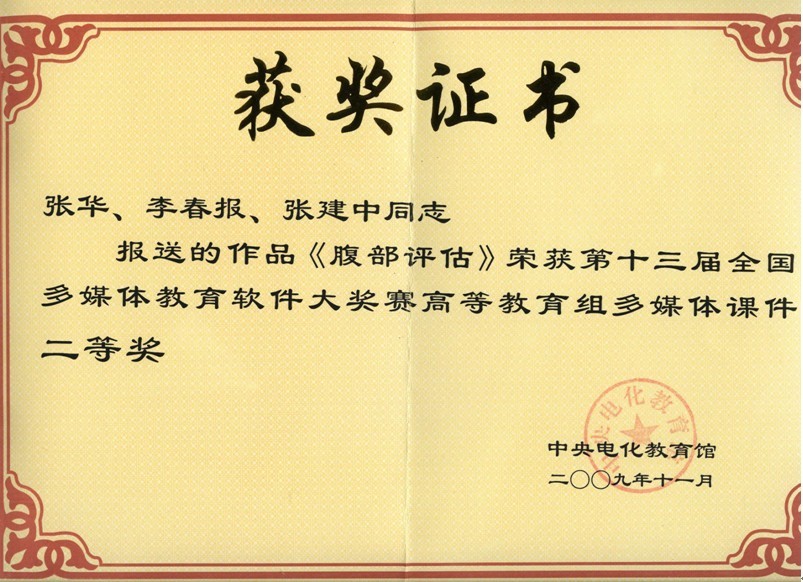 获奖证书
张华、李春报、张建中同志
报送的作品《腹部评估》荣获第十三届全国
多媒体教育软件大奖赛高等教育组多媒体课件
二等奖
中央电化教育馆
中央电化教育馆
二〇〇九年十一月